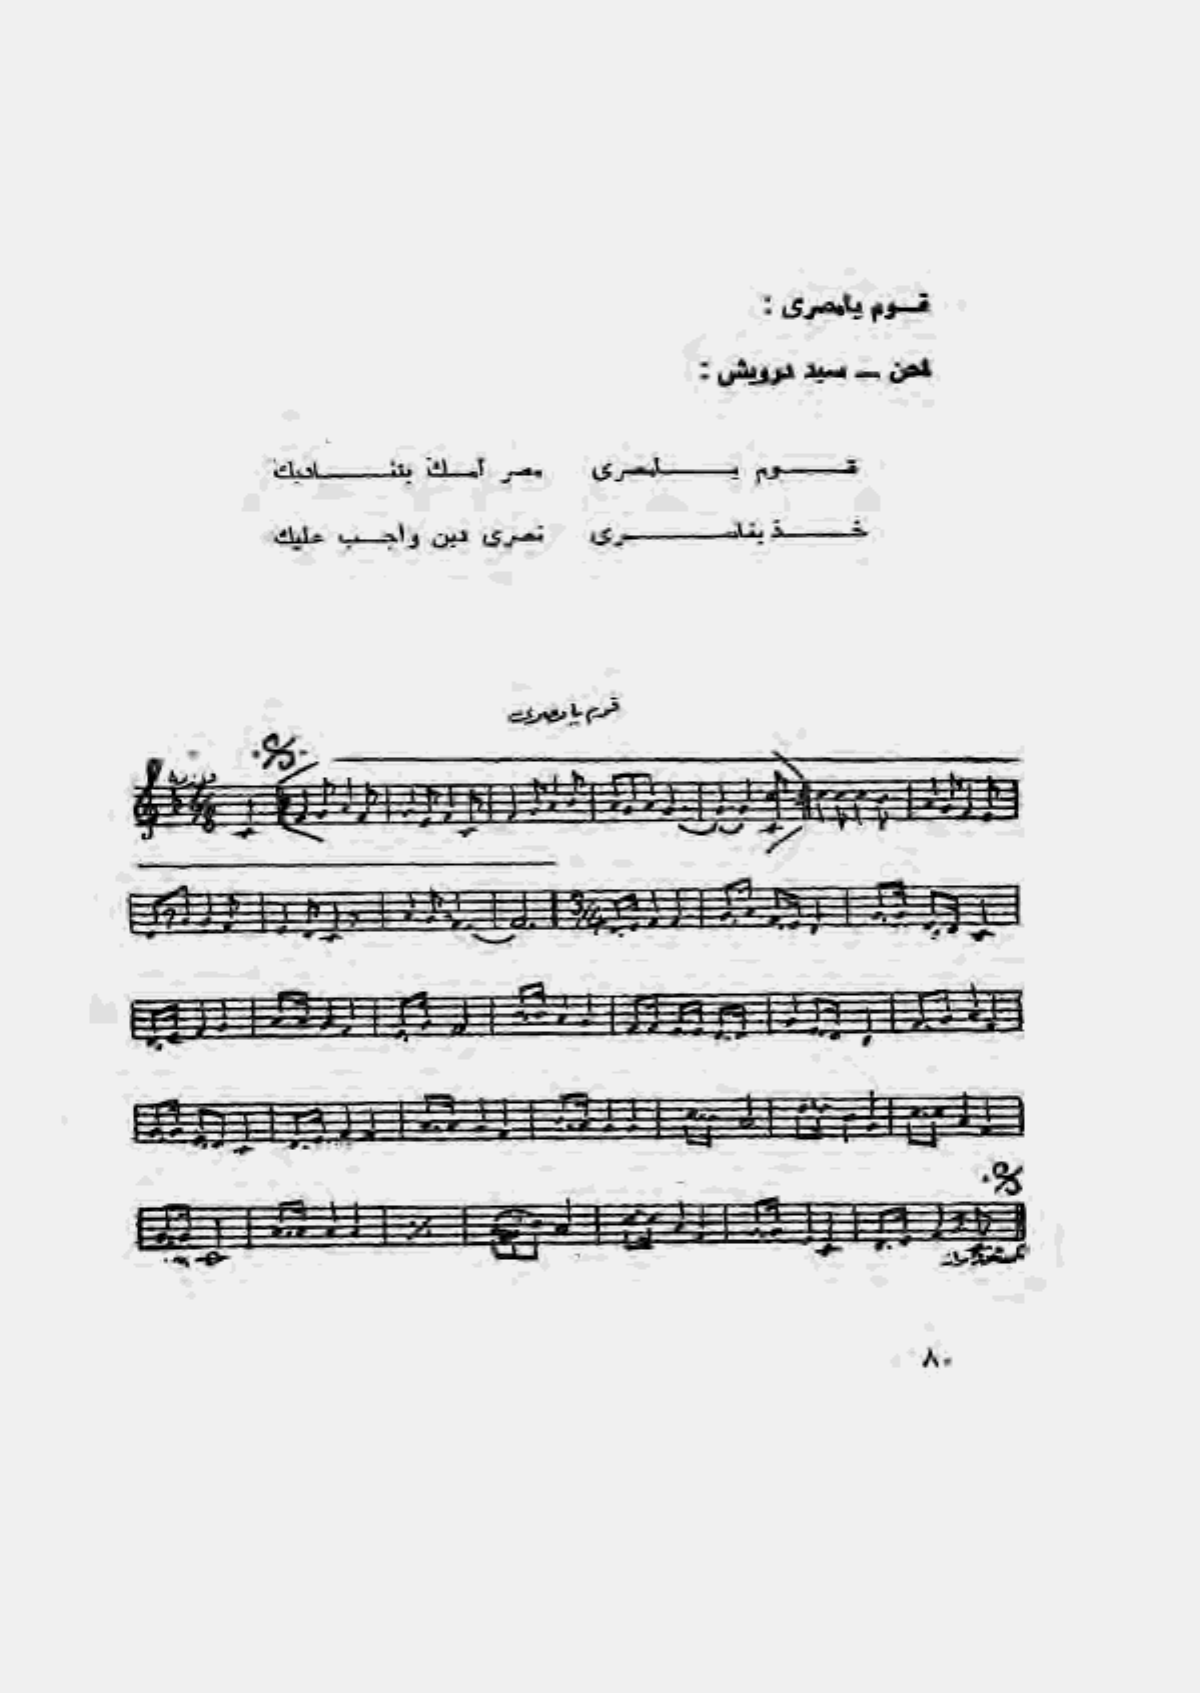 قــوم يامصرى :
لحن ــ سيد درويش :
قـــــوم يـــــامصرى مصر أمـــك بتنـــــاديك
خـــــذ بناصـــــرى نصرى دين واجـــب عليك
قوم يا مصرى
٨٠